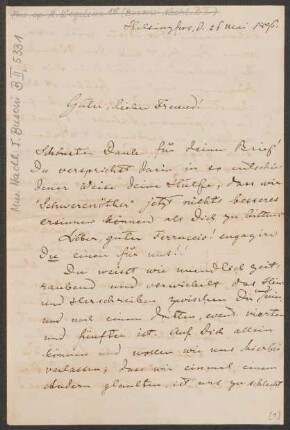 Helsingfors, d. 26 Mai 1896.
Guter, lieber Freund!
Schönsten Dank für deine Brief!
Du versprichst darin in so entschie-
dener Weise deine Hülfe, dass wir
"Schwerenöther" jetzt nichts besseres
ersinnen können als Dich zu bitten:
Lieber, guter Ferruccio! engagire
Du einen für uns!!
Du weisst wie unendlich zeit-
raubend und verwickelt das Hin
und Herschreiben zwischen Dir, 
und noch einem dritten, event. vierten
und fünften ist. Auf Dich allein
können und wollen wir uns hierbei
verlassen; dass wir einmal einem
andern glaubten, ist uns zu schlecht
[1]
Mus. Nachl. F. Busoni B II, 5331